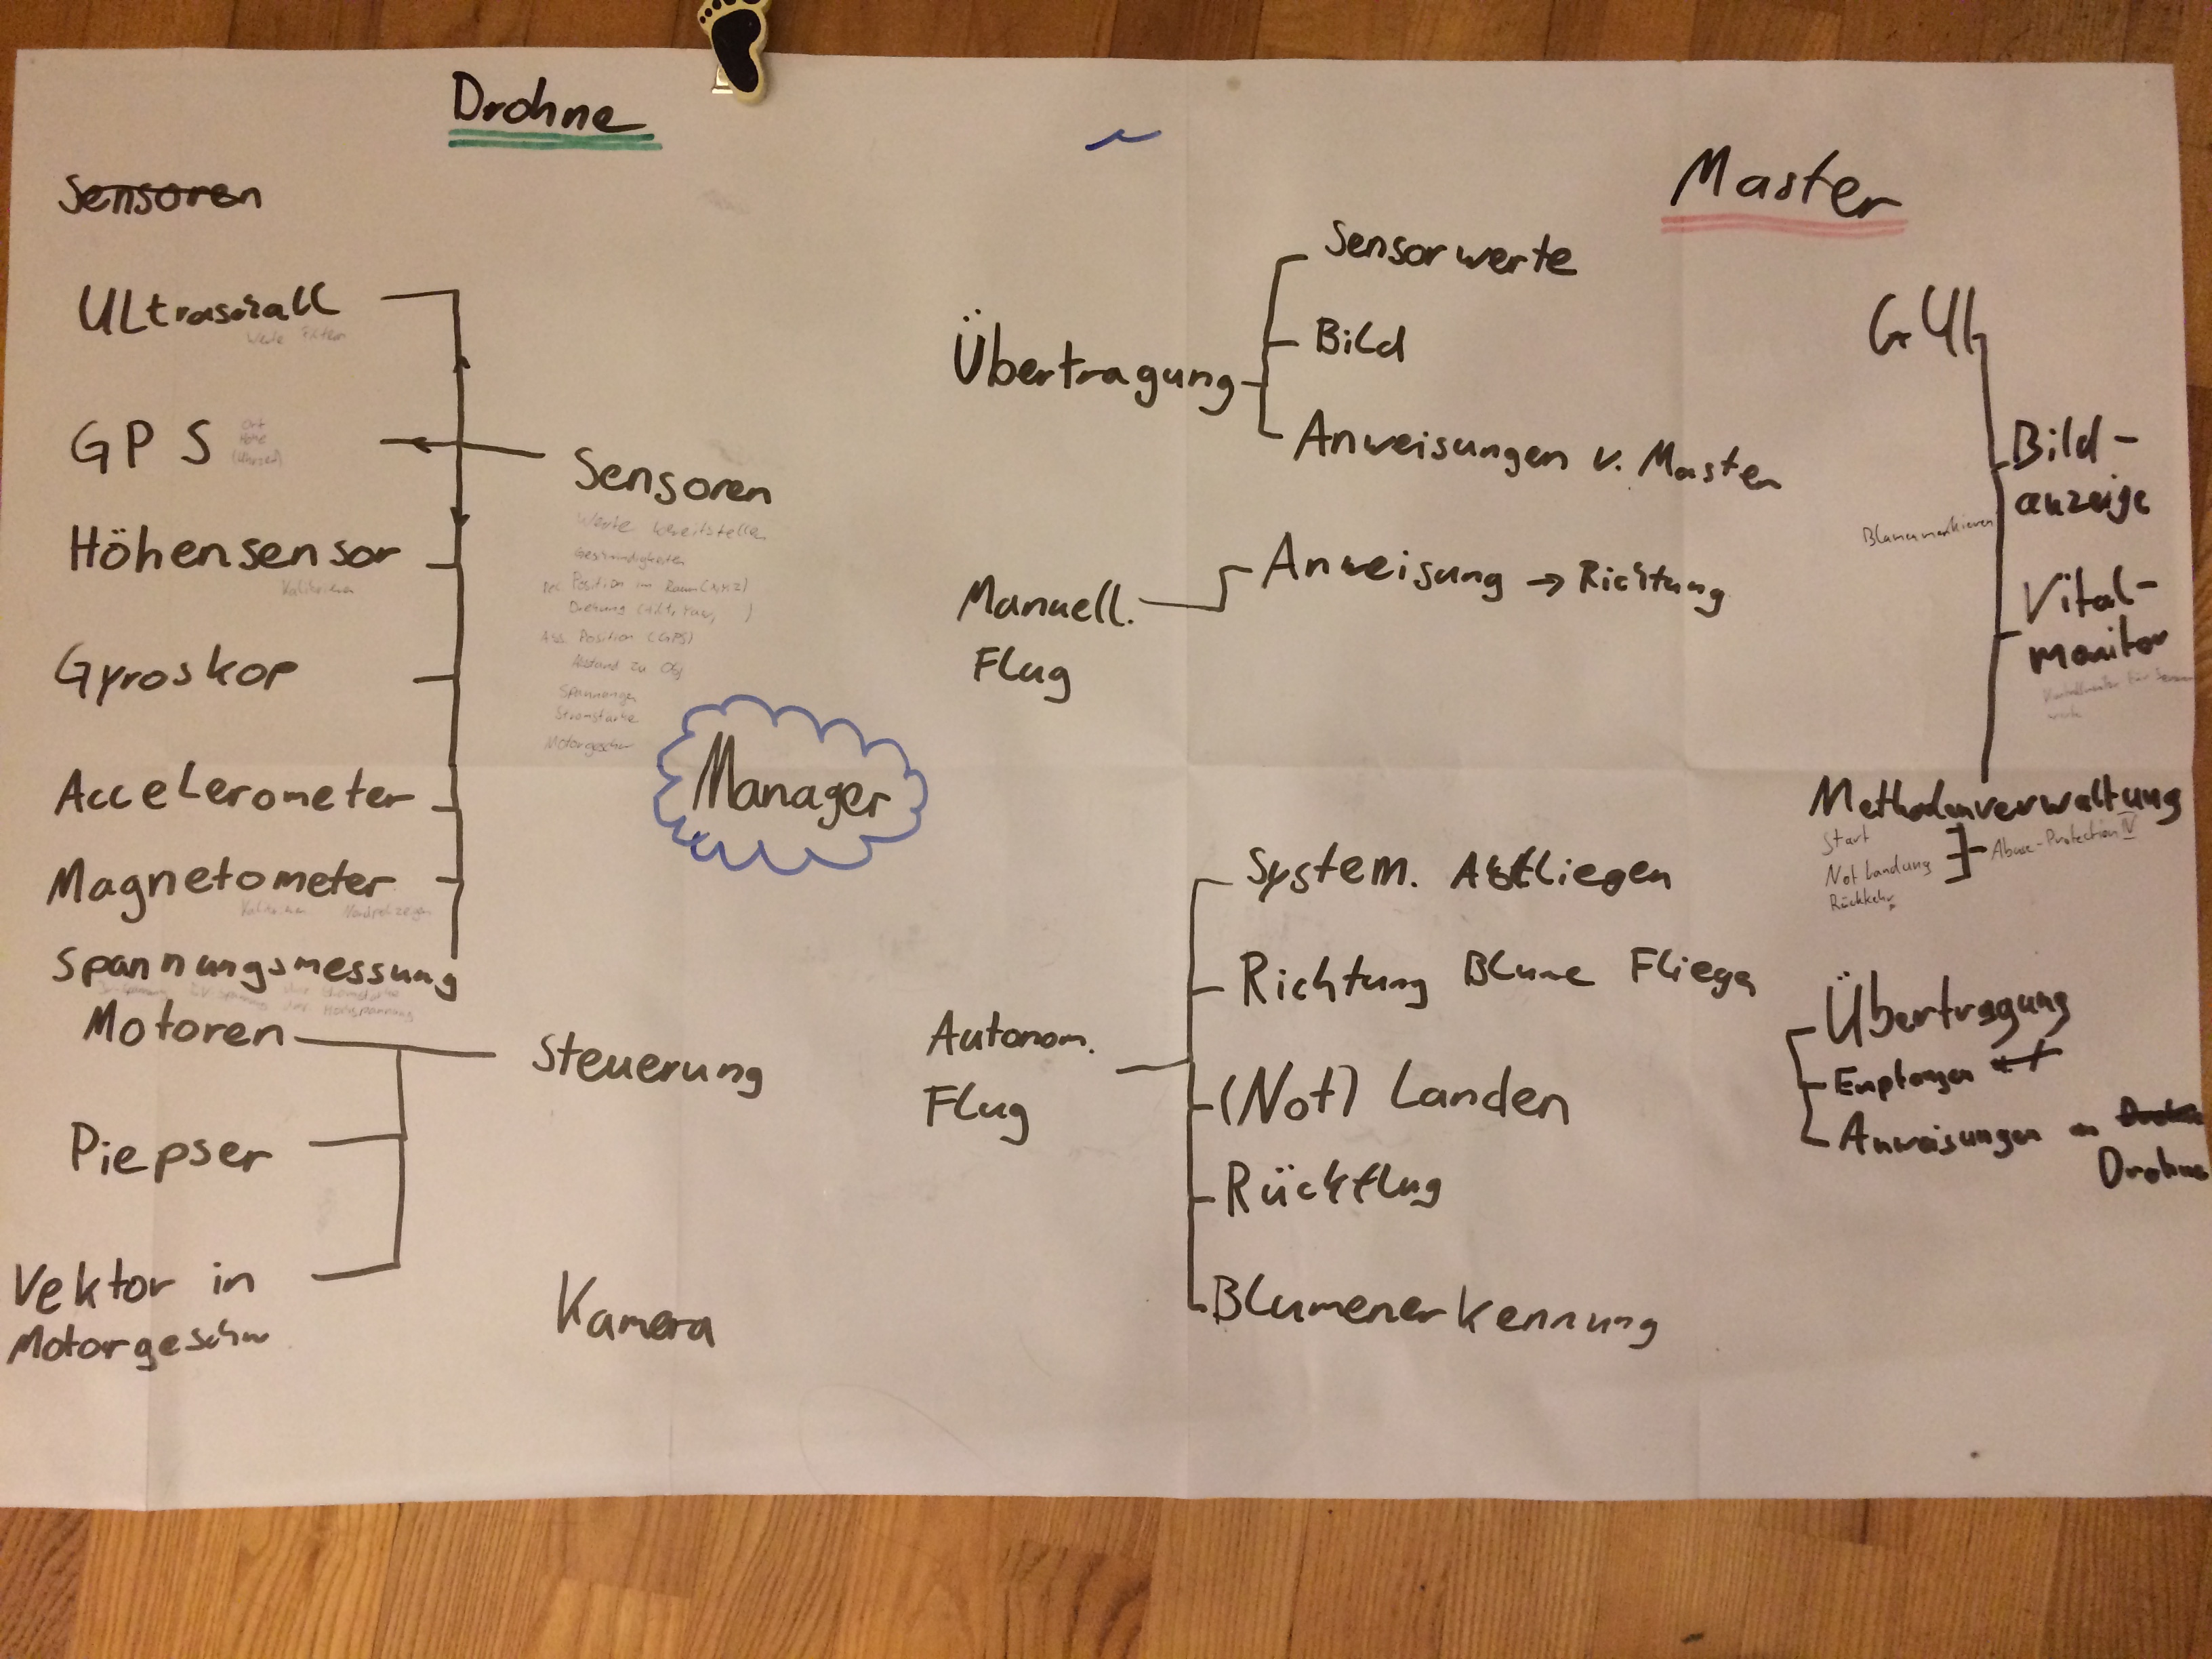 Drohne
Sensoren
Ultraschall
Werte
GPS
Ort
Höhe
Höhensensor
Kalibrieren
Gyroskop
Accelerometer
Magnetometer
Kalibrieren
Spannungsmessung
Sensoren
Werte bereitstellen
Geschwindigkeiten
Position im Raum (X,Y,Z)
Drehung
Abs. Position (GPS)
Abstand zu Obj
Spannungen
Stromstärke
Motorgeschw
Manager
Motoren
Piepser
Vektor in
Motorgeschw
Steuerung
Kamera
Übertragung
Sensorwerte
Bild
Anweisungen v. Master
Manuell.
Flug
Anweisung → Richtung
Autonom.
Flug
System. Abfliegen
Richtung Blume Fliegen
(Not) Landen
Rückflug
Blumenerkennung
Master
GUI
Bild-
anzeige
Blumen markieren
Vital-
monitor
Methodenverwaltung
Start
Notlandung
Rückkehr
Abuse-Protection
Übertragung
Empfangen
Anweisungen an
Drohne